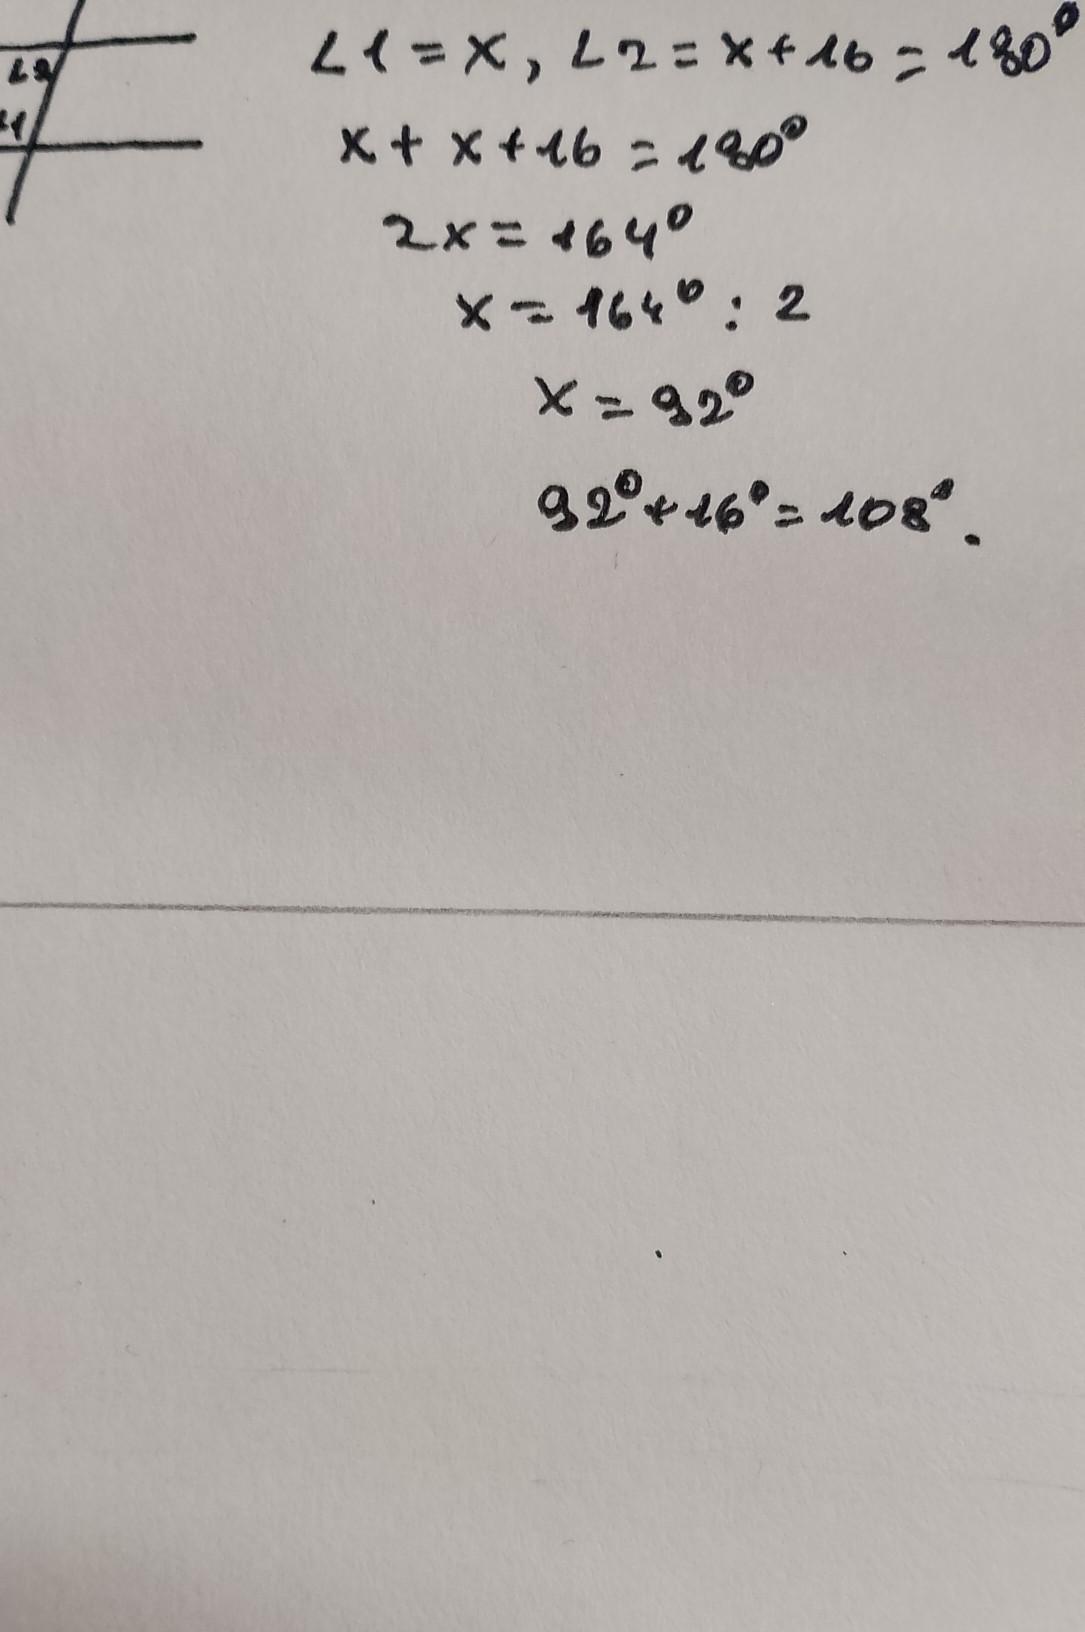 ∠2
∠1
∠1 = x, ∠2 = x + 16 = 180°
x + x + 16 = 180°
2x = 164°
x = 164° : 2
x = 92°
92° + 16° = 108°.